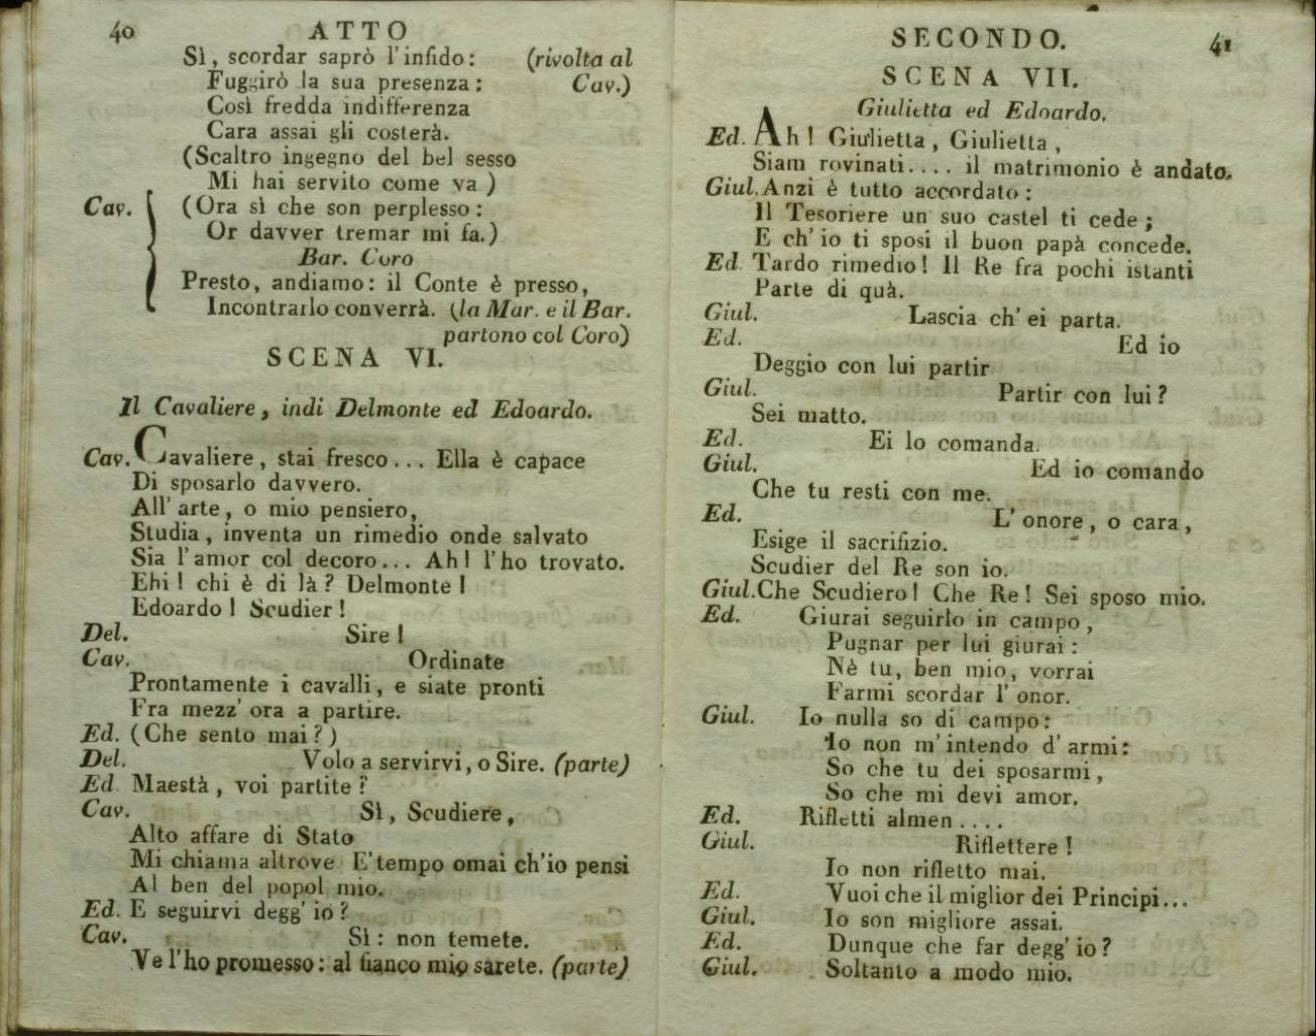 40
ATTO
Sì, scordar saprò l'infido: (rivolta al
Fuggirò la sua presenza: Cav.)
Così fredda indifferenza
Cara assai gli costerà.
(Scaltro ingegno del bel sesso
Mi hai servito come va )
Cav. (Ora sì che son perplesso:
Or davver tremar mi fa.)
Bar. Coro
Presto, andiamo: il Conte è presso,
Incontrarlo converrà. (la Mar. e il Bar.
partono col Coro)
SCENA VI.
Il Cavaliere, indi Delmonte ed Edoardo.
Cav. Cavaliere, stai fresco... Ella è capace
Di sposarlo davvero.
All'arte, o mio pensiero,
Studia, inventa un rimedio onde salvato
Sia l'amor col decoro... Ah! l'ho trovato.
Ehi! chi è di là? Delmonte!
Edoardo! Scudier!
Del. Sire!
Cav. Ordinate
Prontamente i cavalli, e siate pronti
Fra mezz'ora a partire.
Ed. (Che sento mai?)
Del. Volo a servirvi, o Sire. (parte)
Ed. Maestà, voi partite?
Cav. Sì, Scudiere,
Alto affare di Stato
Mi chiama altrove E'tempo omai ch'io pensi
Al ben del popol mio.
Ed. E seguirvi degg'io?
Cav. Sì: non temete.
Ve l'ho promesso: al fianco mio sarete. (parte)
SECONDO.
41
SCENA VII.
Giulietta ed Edoardo.
Ed. Ah! Giulietta, Giulietta,
Siam rovinati.... il matrimonio è andato.
Giul. Anzi è tutto accordato:
Il Tesoriere un suo castel ti cede;
E ch'io ti sposi il buon papà concede.
Ed. Tardo rimedio! Il Re fra pochi istanti
Parte di quà.
Giul. Lascia ch'ei parta.
Ed. Ed io
Deggio con lui partir
Giul. Partir con lui?
Sei matto.
Ed. Ei lo comanda.
Giul. Ed io comando
Che tu resti con me.
Ed. L'onore, o cara,
Esige il sacrifizio.
Scudier del Re son io.
Giul. Che Scudiero! Che Re! Sei sposo mio.
Ed. Giurai seguirlo in campo,
Pugnar per lui giurai:
Nè tu, ben mio, vorrai
Farmi scordar l'onor.
Giul. Io nulla so di campo:
Io non m'intendo d'armi:
So che tu dei sposarmi,
So che mi devi amor.
Ed. Rifletti almen....
Giul. Riflettere!
Io non rifletto mai.
Ed. Vuoi che il miglior dei Principi...
Giul. Io son migliore assai.
Ed. Dunque che far degg'io?
Giul. Soltanto a modo mio.